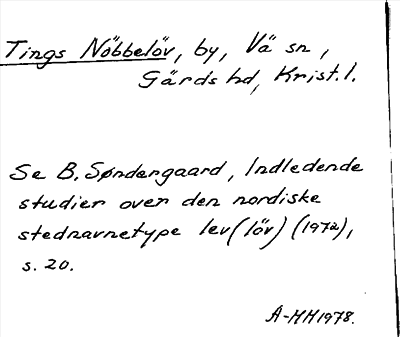 Tings Nöbbelöv, by, Vä sn,
Gärds hd, Krist. l.
Se B. Søndergaard, Indledende
studier over den nordiske
stednavnetype lev(löv) (1972),
s. 20.
A-HH1978.